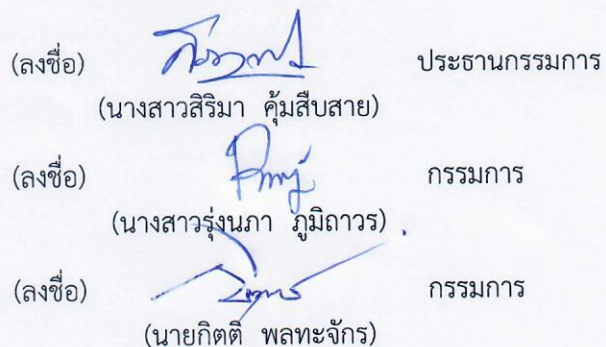 (ลงชื่อ) ประธานกรรมการ
(นางสาวสิริมา คุ้มสืบสาย)
(ลงชื่อ) กรรมการ
(นางสาวรุ่งนภา ภูมิถาวร)
(ลงชื่อ) กรรมการ
(นายกิตติ พลทะจักร)